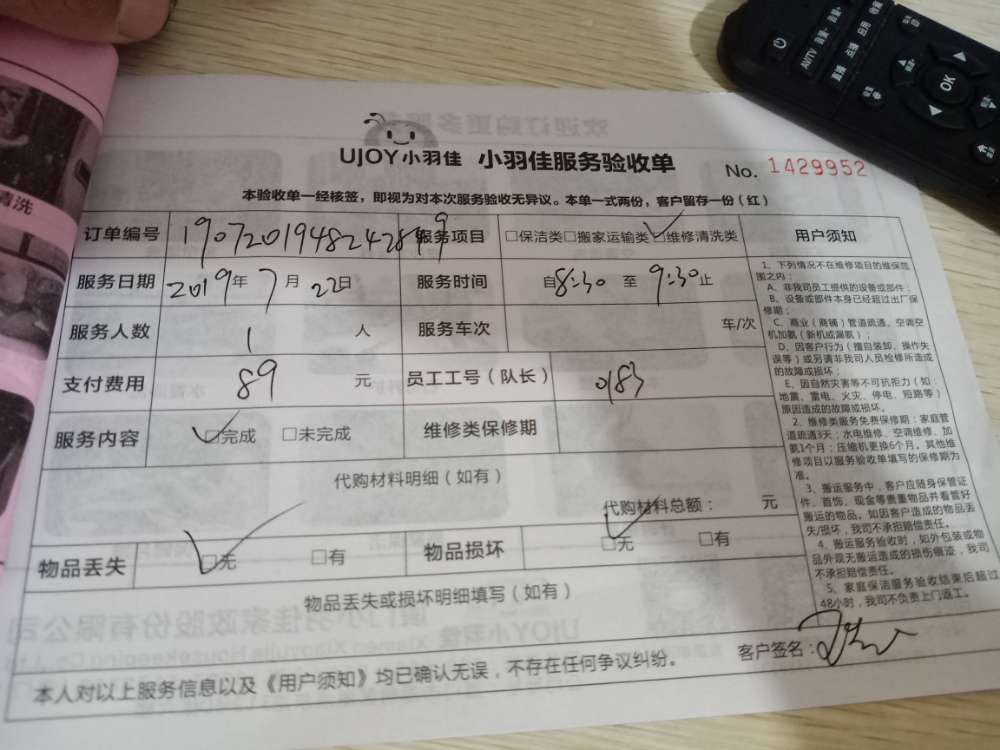 UJOY小羽佳 小羽佳服务验收单 No. 1429952
本验收单一经核签，即视为对本次服务验收无异议。本单一式两份，客户留存一份（红）
订单编号 服务项目 □保洁类□搬家运输类☑维修清洗类 用户须知
服务日期 2019年7月22日 服务时间 自8:30 至 9:30止
服务人数 1 人 服务车次 车/次
支付费用 89 元 员工工号（队长） 0183
服务内容 ☑完成 □未完成 维修类保修期
代购材料明细（如有）
代购材料总额： 元
物品丢失 ☑无 □有 物品损坏 ☑无 □有
物品丢失或损坏明细填写（如有）
本人对以上服务信息以及《用户须知》均已确认无误，不存在任何争议纠纷。 客户签名：
1、下列情况不在维修项目的维保范
围之内：
A、非我司员工提供的设备或部件；
B、设备或部件本身已经超过出厂保
修期；
C、商业（商铺）管道疏通、空调空
机加氨（新机或漏氨）；
D、因客户行为（擅自装卸、操作失
误等）或另请非我司人员检修所造成
的故障或损坏；
E、因自然灾害等不可抗拒力（如：
地震、雷电、火灾、停电、短路等）
原因造成的故障或损坏。
2、维修类服务免费保修期：家庭管
道疏通3天；水电维修、空调维修、加
氨1个月；压缩机更换6个月。其他维
修项目以服务验收单填写的保修期为
准。
3、搬运服务中，客户应随身保管证
件、首饰、现金等贵重物品并看管好
搬运的物品。如因客户造成的物品丢
失/损坏，我司不承担赔偿责任。
4、搬运服务验收时，如外包装或物
品外观无搬运造成的损伤痕迹，我司
不承担赔偿责任。
5、家庭保洁服务验收结束后超过
48小时，我司不负责上门返工。
清洗
AV/TV
直播 点播 应用 收藏
OK